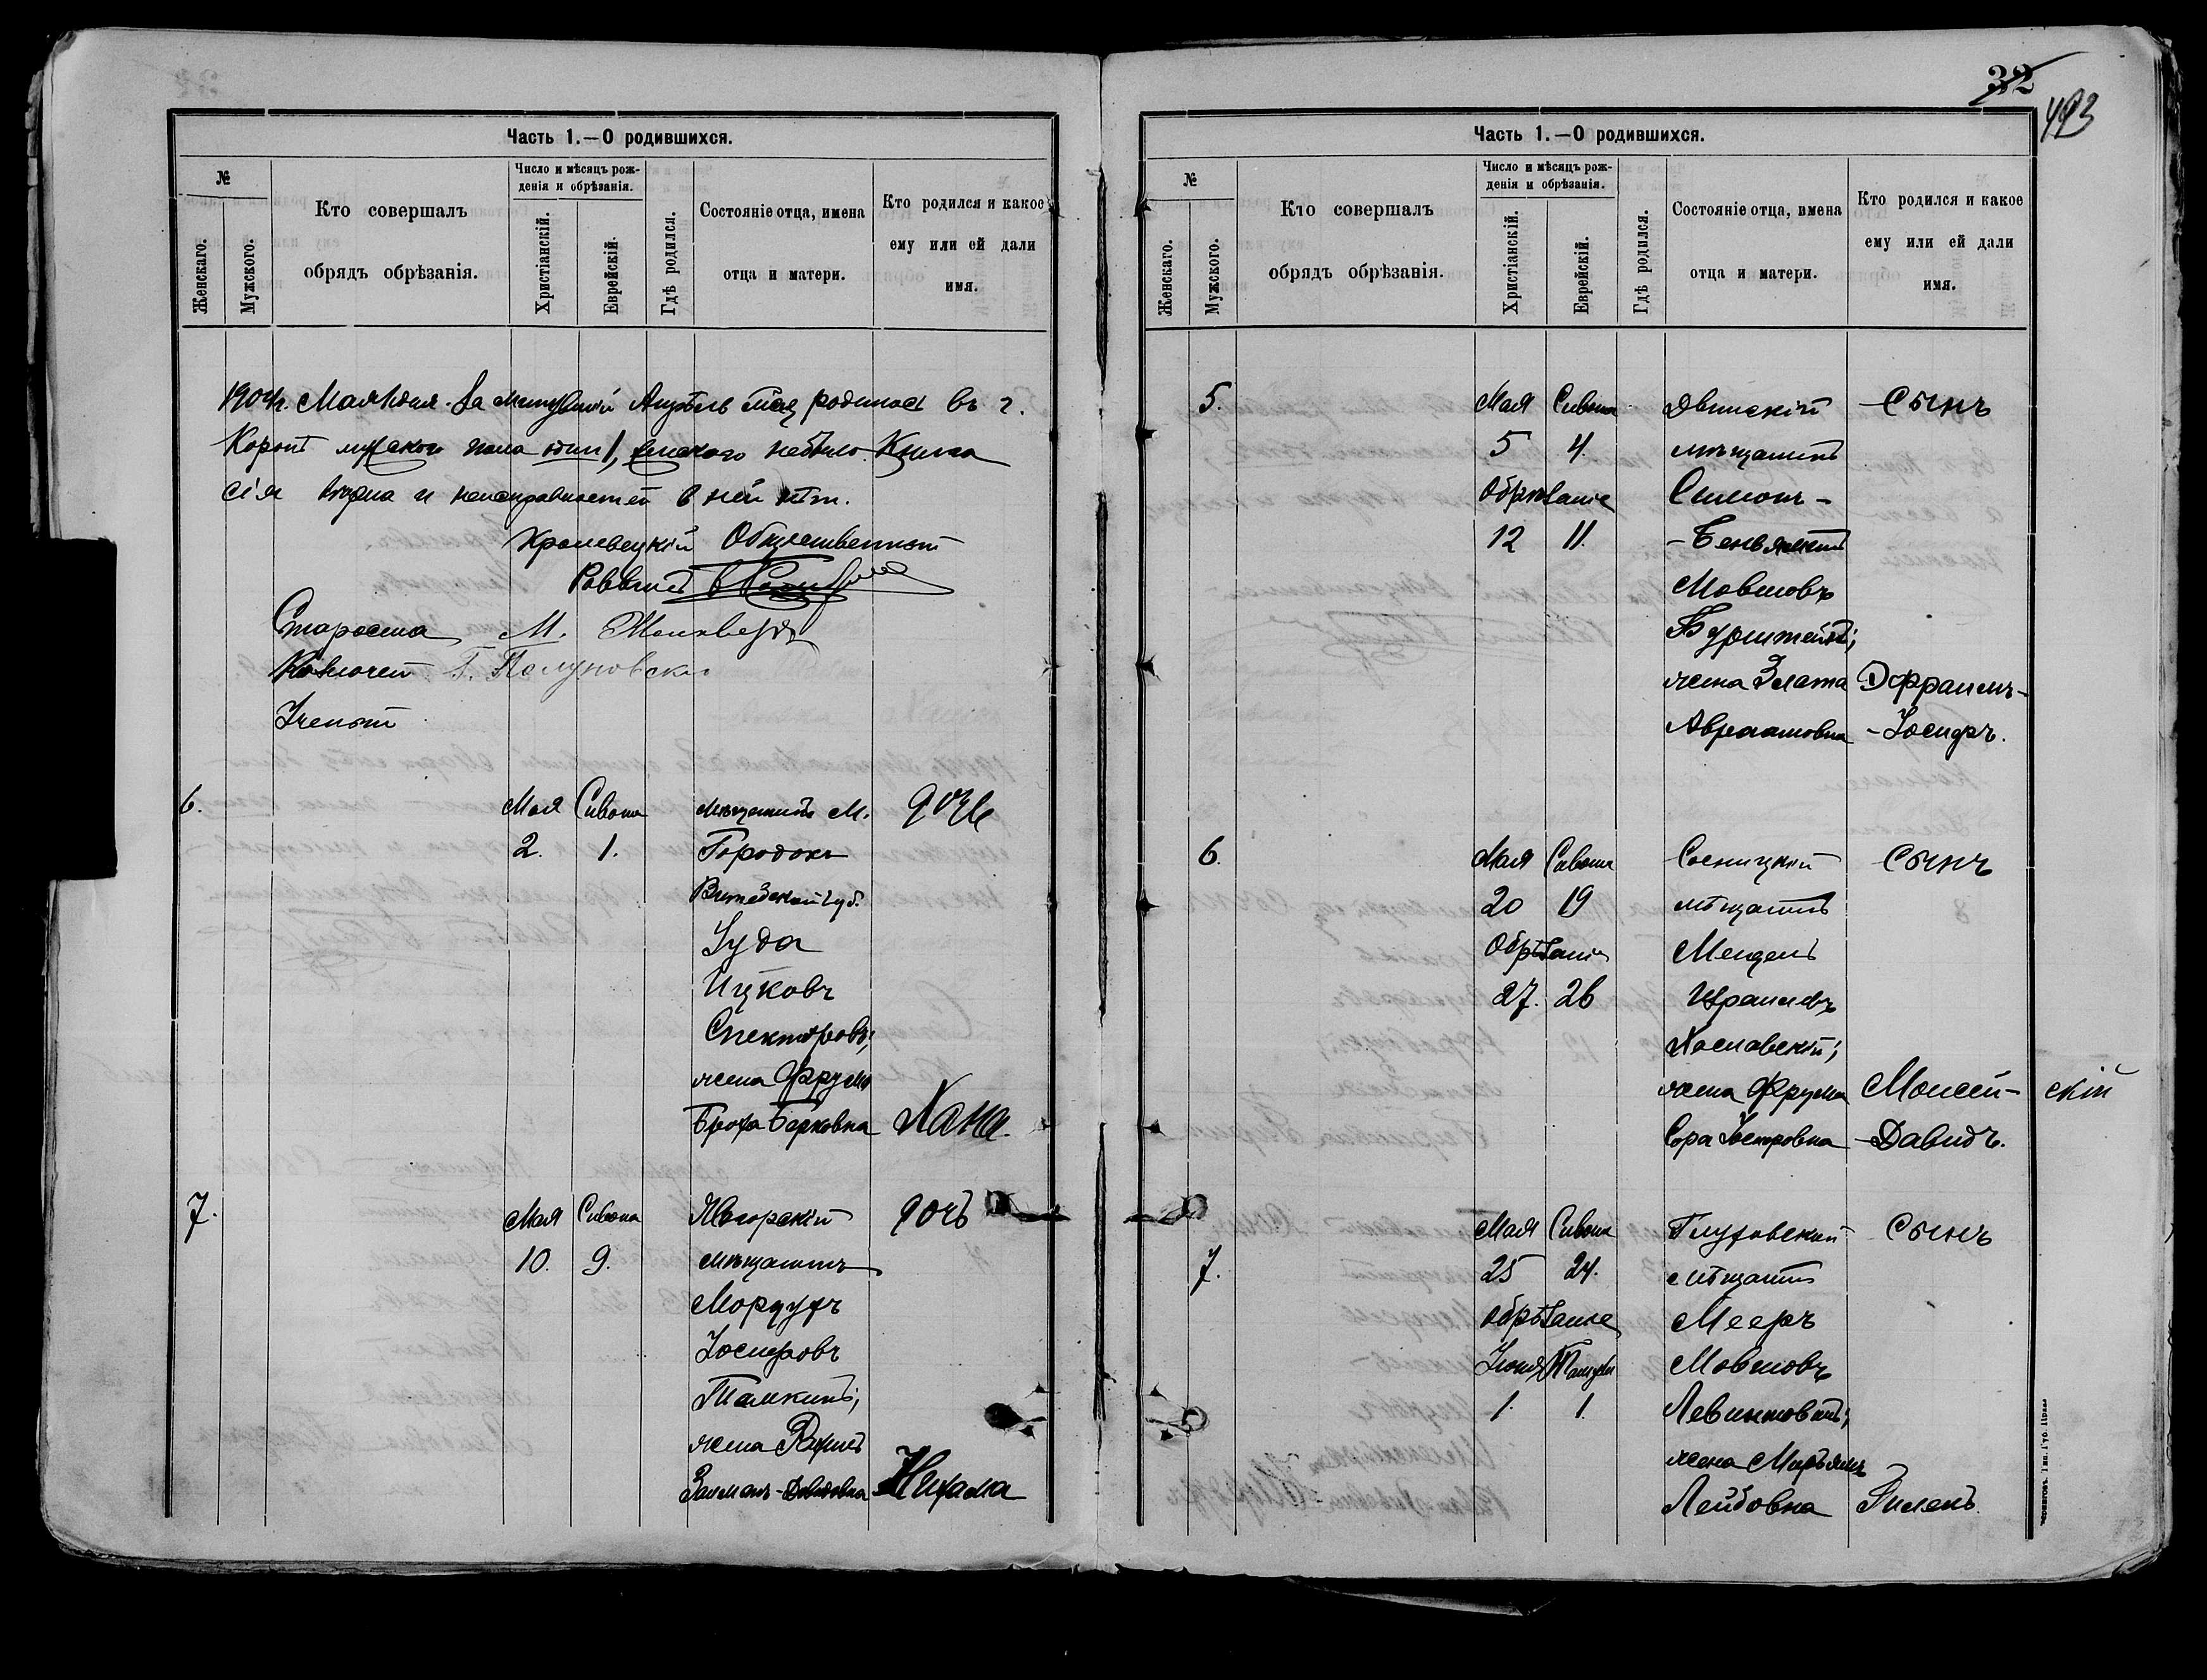 Часть 1.—О родившихся.
№
Женскаго.
Мужского.
Кто совершалъ
обрядъ обрѣзанія.
Число и мѣсяцъ рож-
денія и обрѣзанія.
Христіанскій.
Еврейскій.
Гдѣ родился.
Состояніе отца, имена
отца и матери.
Кто родился и какое
ему или ей дали
имя.
1904г. Мая 1 дня. За минувшій Апрѣль мѣсяц родилось въ г.
Коропѣ мужского пола один 1, женского небыло. Книга
сія вѣрна и неисправностей в ней нѣт.
Кролевецкій Общественный
Раввинъ
Староста М.
Казначей Г.
Ученый
6.
Мая Сивона
2. 1.
мѣщанинъ м.
Городокъ
Витебской губ.
Іуда
Ицковъ
Спекторовъ;
жена Фрума
Броха Берковна
дочь
Хана.
7.
Мая Сивона
10. 9.
мѣщанинъ
Мордухъ
Іосифовъ
Талкинъ;
жена
Залманъ-Давидовна
дочь
Нехама
32
Часть 1.—О родившихся.
№
Женскаго.
Мужского.
Кто совершалъ
обрядъ обрѣзанія.
Число и мѣсяцъ рож-
денія и обрѣзанія.
Христіанскій.
Еврейскій.
Гдѣ родился.
Состояніе отца, имена
отца и матери.
Кто родился и какое
ему или ей дали
имя.
5.
Мая Сивона
5 4.
Обрѣзаніе
12 11.
Двинскій
мѣщанинъ
Симонъ-
-Беньяминъ
Мовшовъ
Бурштейнъ;
жена Злата
Авраамовна
сынъ
Эфраимъ-
-Іосифъ.
6.
Мая Сивона
20 19
Обрѣзаніе
27. 26
Сосницкій
мѣщанинъ
Мендель
Израилевъ
Хославскій;
жена Фрума
Сора Іосифовна
сынъ
Моисей-
-Давидъ.
скій
7.
Мая Сивона
25 24.
Обрѣзаніе
Іюня Тамуза
1. 1.
Глуховский
мѣщанин
Мееръ
Мовшовъ
жена Марьямъ
Лейбовна
сынъ
Гилель.